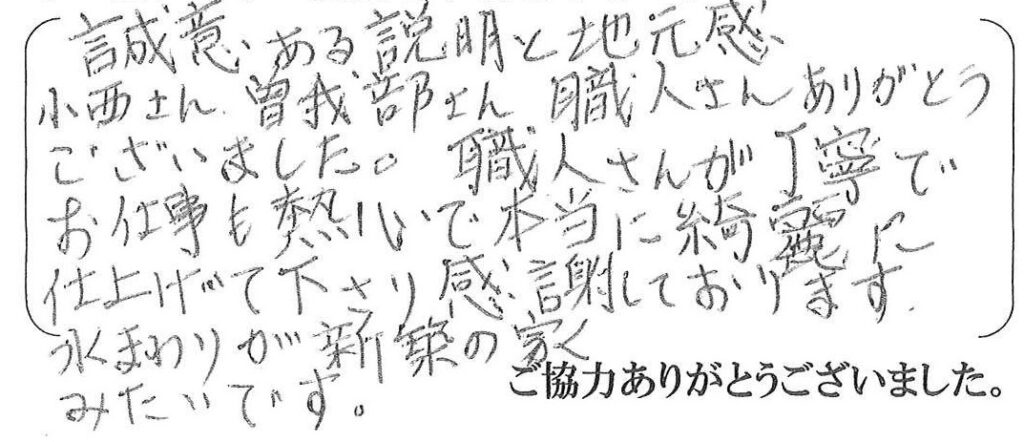 誠意ある説明と地元感
小西さん 曽我部さん 職人さんありがとう
ございました。職人さんが丁寧で
お仕事も熱心で本当に綺麗に
仕上げて下さり感謝しております.
水まわりが新築の家
みたいです。
ご協力ありがとうございました。